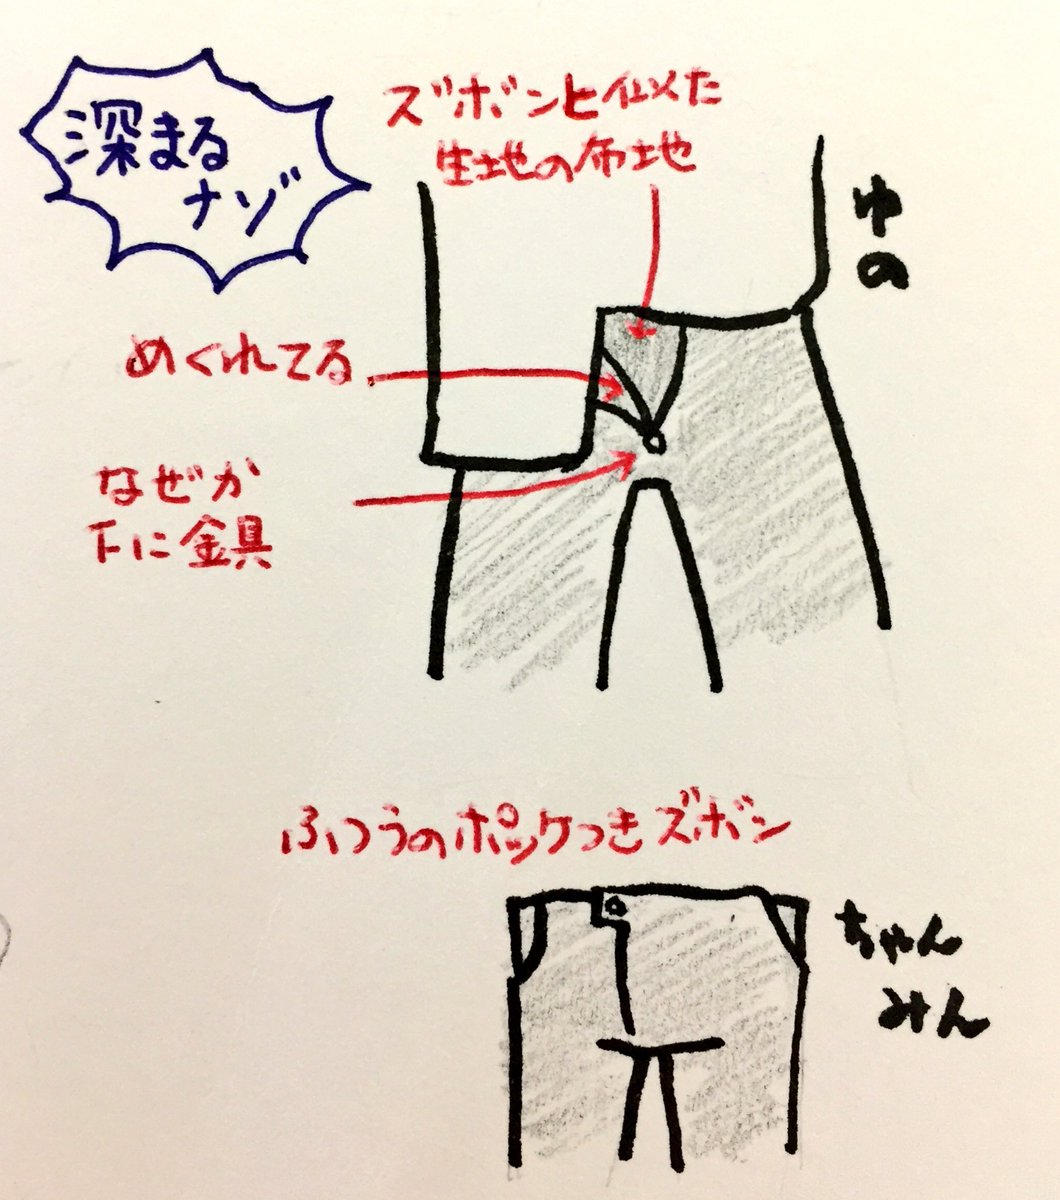 深まる
ナゾ
ズボンと似た
生地の布地
ゆの
めくれてる
なぜか
下に金具
ふつうのポッケつきズボン
ちゃん
みん